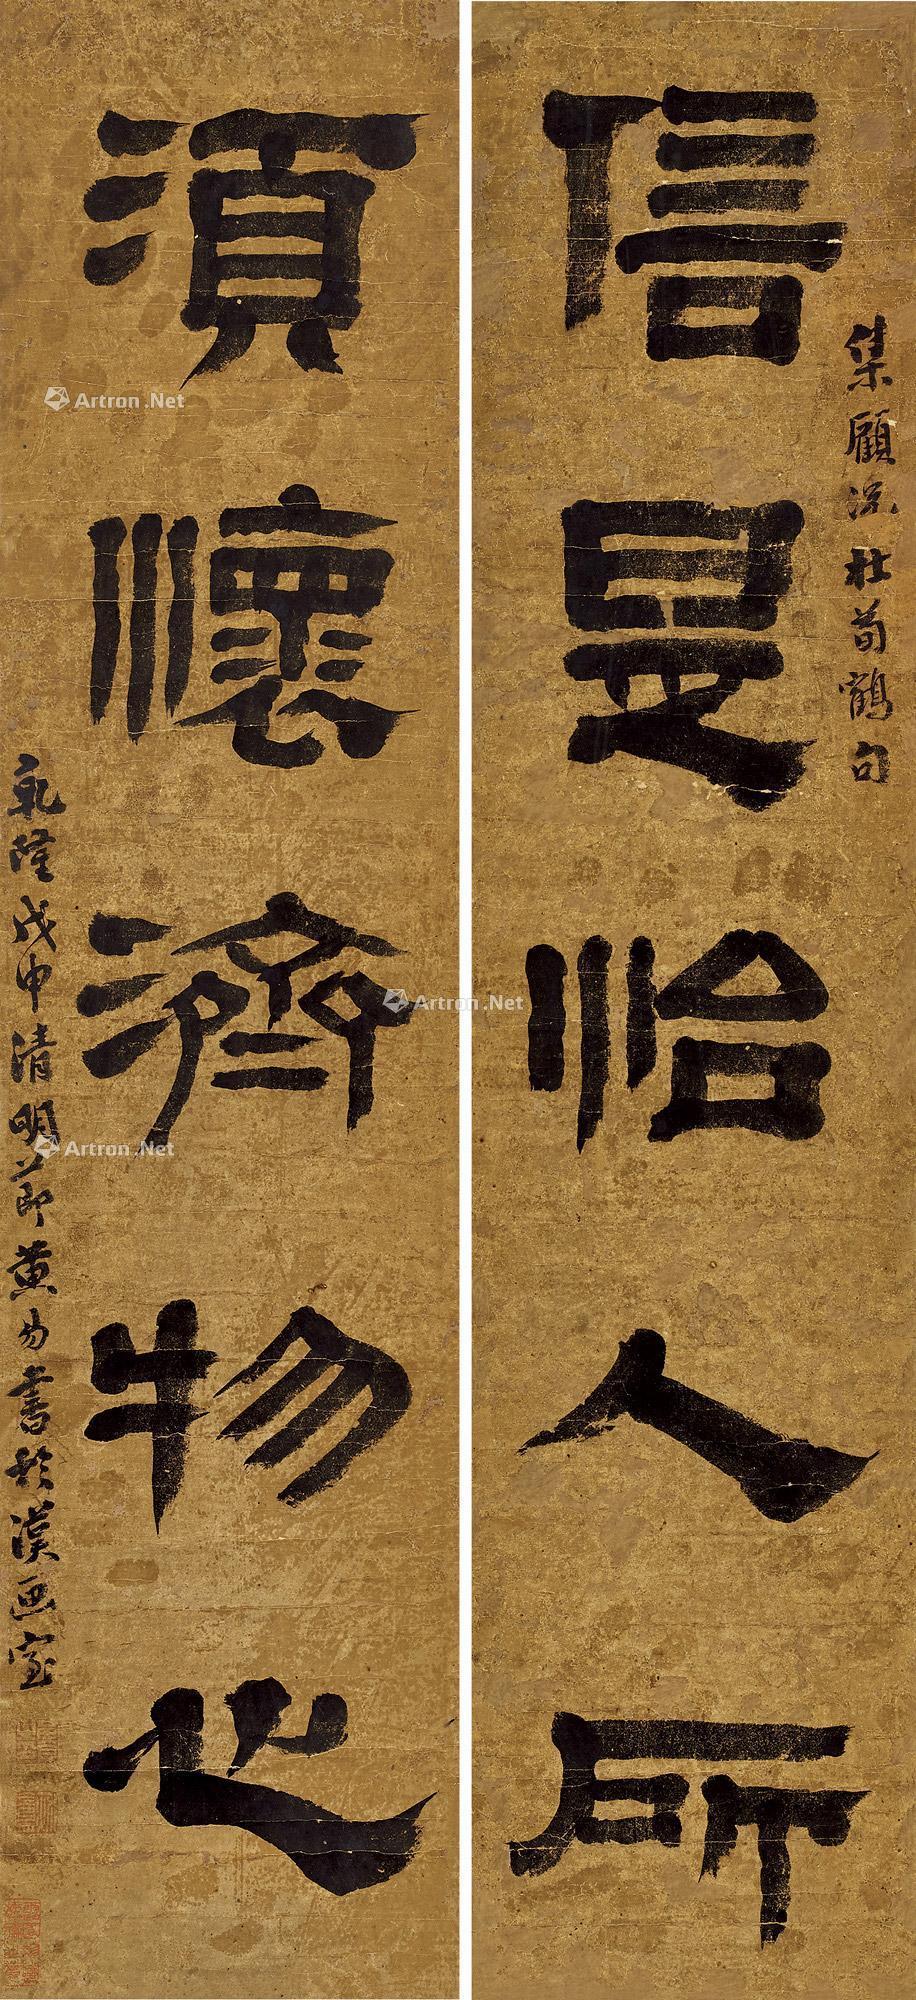 集顧況杜荀鶴句
信是怡人所
須懷濟物心
乾隆戊申清明節黄易書於漢画室
Artron.Net
Artron.Net
Artron.Net